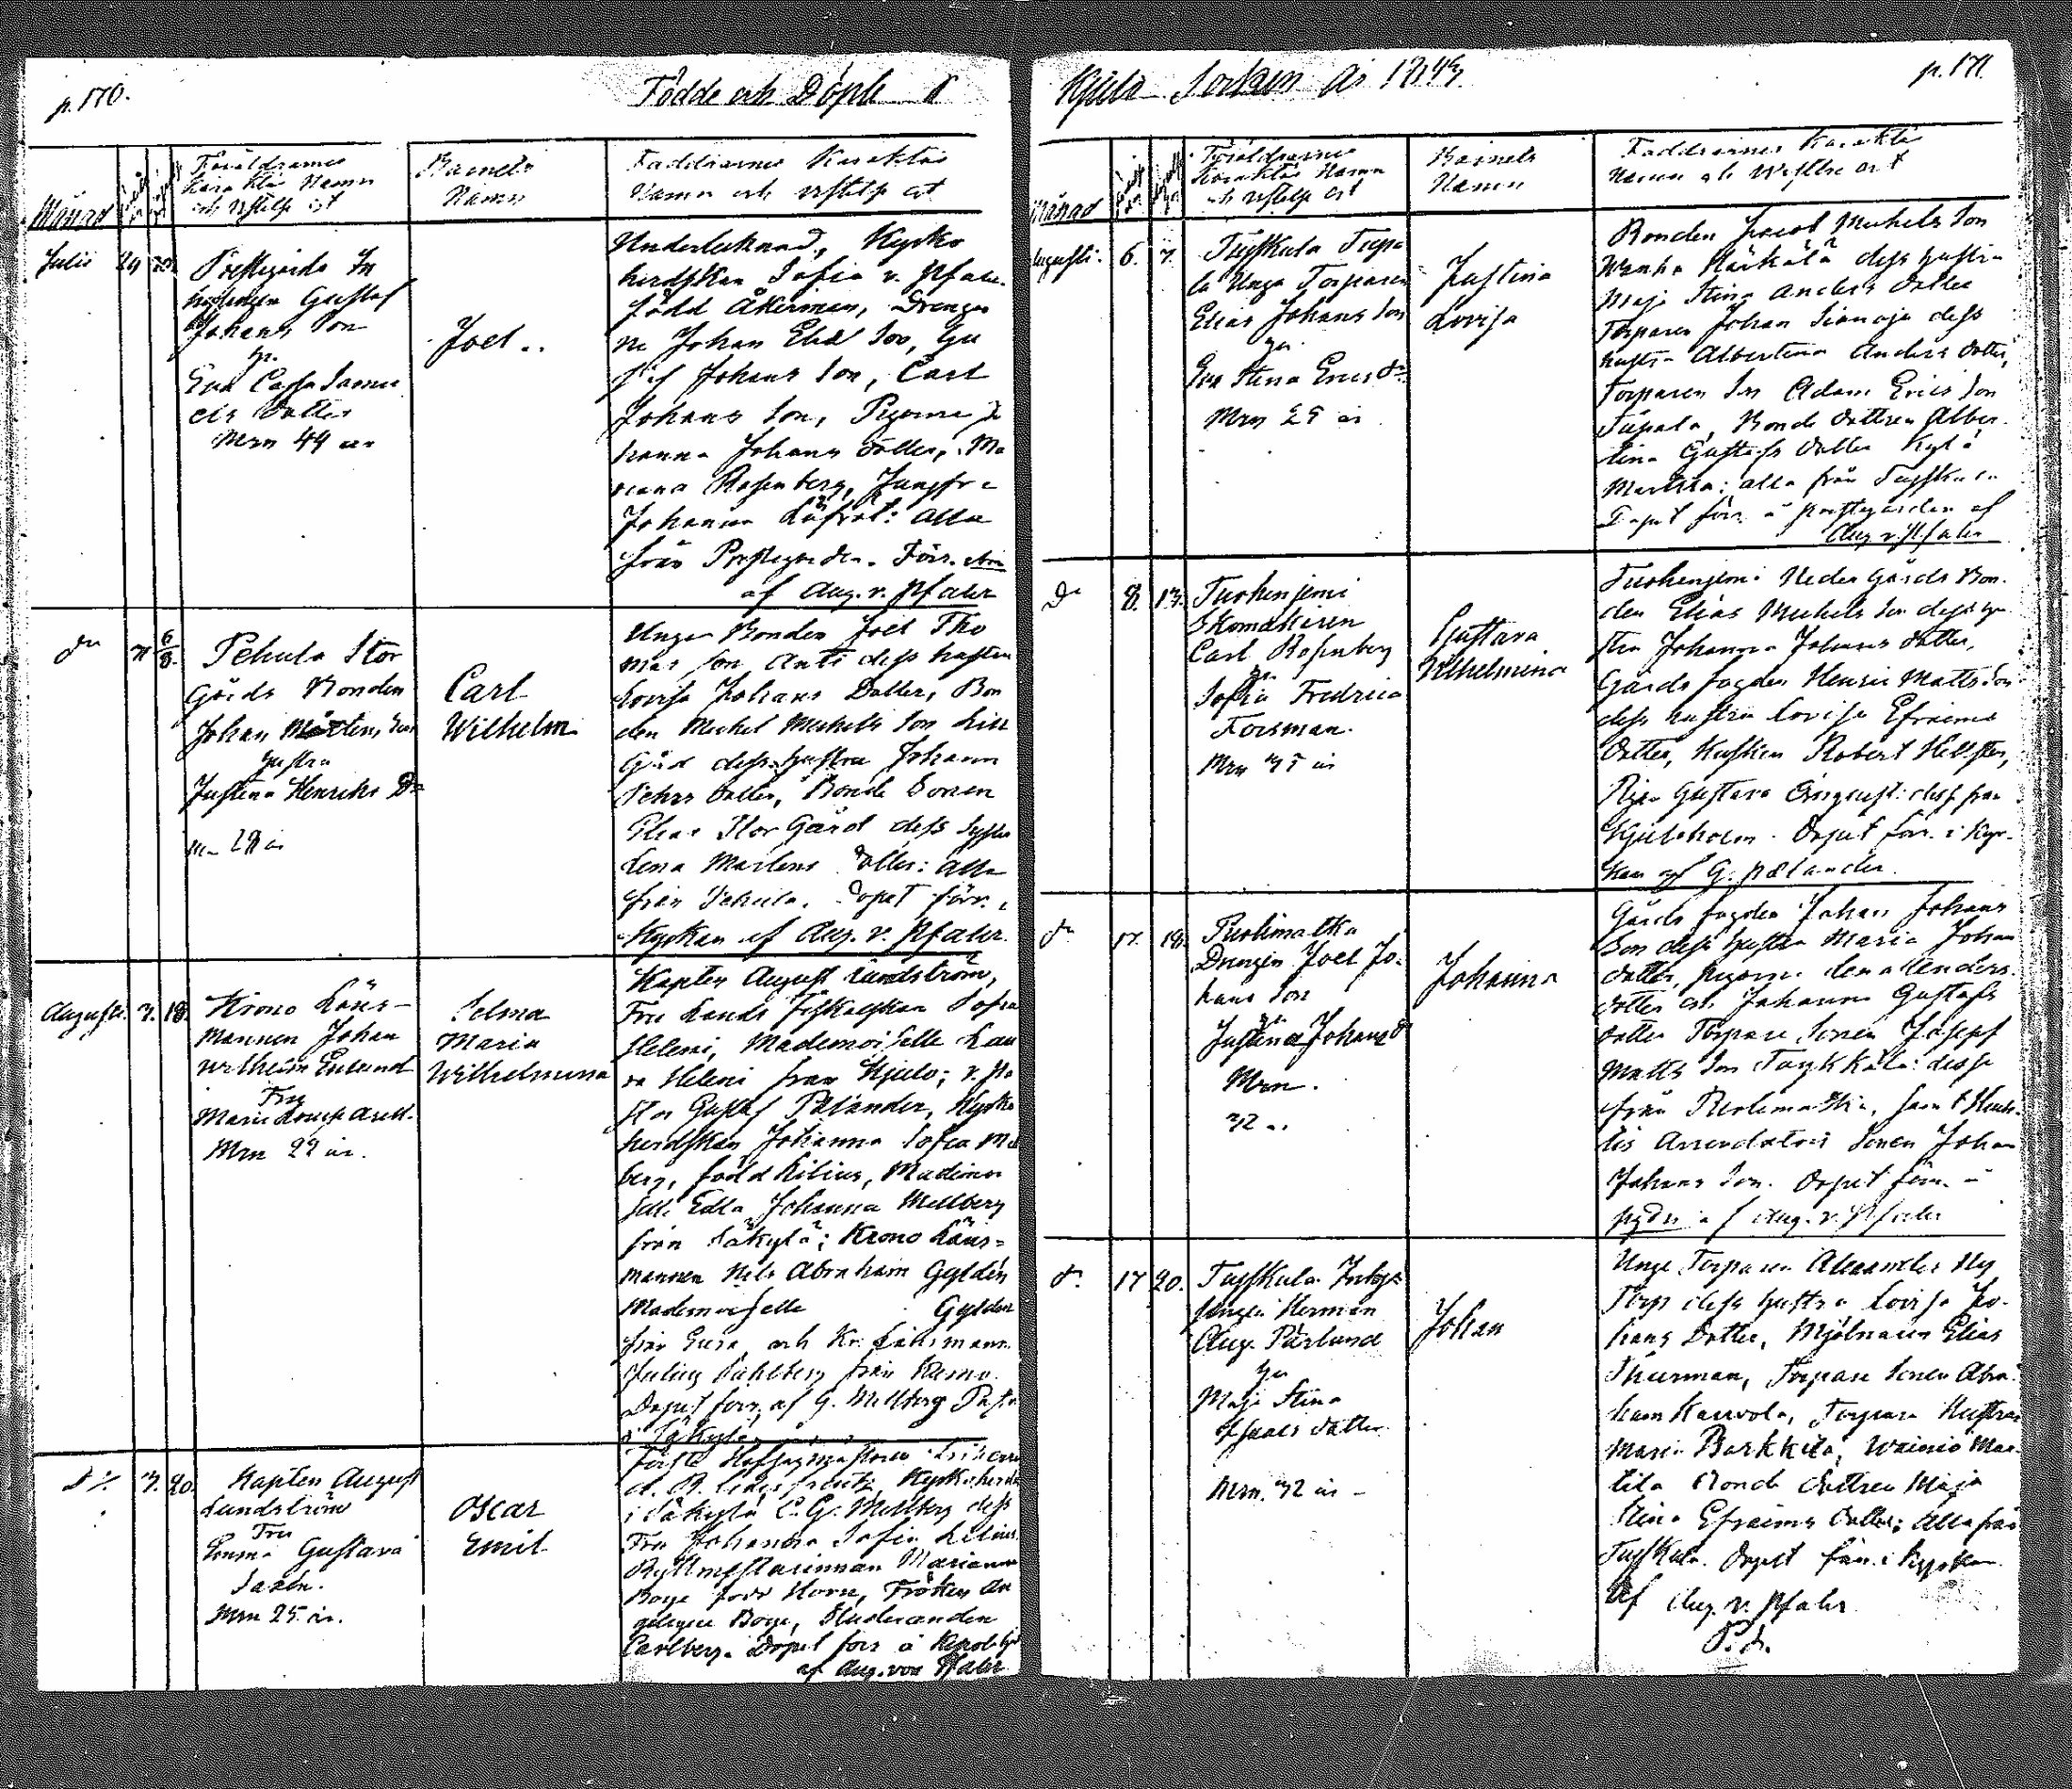 p. 170.
Födde och Döpte i
Månad
Föräldrarnes
Karaktär Namn
och vistelse ort
Barnets
Namn
Faddrarnes Karaktär
Namn och vistelse ort
Julii 29
Prestgårds In
Gustaf
Johans Son
hu
Eva Cajsa Samu
els Dotter
Mrn 44 år
Joel
Undertecknad, Kyrko
herdskan Sofia v. Pfaler
född Åkerman, Drengar
ne Johan Elia Son, Gu
staf Johans Son, Carl
Johans Son, Pigorne Jo
hanna Johans Dotter, Ma
riana Rosenberg, Jungfru
Johanna Löfrot: alla
från Prestgården. Förr.
af Aug. v. Pfaler
Pehula Stor
Gårds Bonden
Johan Mårtens Son
hustru
Justina Henriks Dr
m. 28 år
Carl
Wilhelm
Unga Bonden Joel Tho
mas Son Anti dess hustru
Lovisa Johans Dotter, Bon
den Michel Michels Son Lill
Gård dess hustru Johanna
Pehrs Dotter, Bonde Sonen
Elias Stor Gård, dess syster
Lena Mårtens Dotter: alla
från Pehula. Dopet förr. i
Kyrkan af Aug. v. Pfaler.
Augusti 3. 18.
Krono Läns-
mannen Johan
Wilhelm Enlund
Fru
Maria Lovisa
Mrn 22 år.
Selma
Maria
Wilhelmina
Kapten August Lundström,
Fru Lands Fiskalskan Sofia
Heleni, Mademoiselle Lau
ra Heleni från Kjulo; v. Pa
stor Gustaf Pälander, Kyrko
herdskan Johanna Sofia Me
berg, född Lilius, Mademoi
selle Edla Johanna Mellberg
från Säkylä; Krono Läns-
mannen Nils Abraham Gyldén
Mademoiselle Gyldén
från Eura, och Kr. Länsmann.
Julius Dahlberg från
Dopet förr. af G. Mellberg Pastor
i Säkylä.
3. 20.
Kapten August
Lundström
Fru
Emma Gustava
Mrn 25 år.
Oscar
Emil
i Säkylä C. G. Mellberg dess
Fru Johanna Sofia Lilius
Ryttmästarinnan Mariana
Boije född Horn, Fröken An
Boije, Studeranden
Carlberg. Dopet förr. å
af Aug. von Pfaler
Kjulo Socken År 1843.
p. 171.
Månad
Föräldrarnes
Karaktär Namn
och vistelse ort
Barnets
Namn
Faddrarnes Karaktär
Namn och Vistelse ort
Augusti. 6. 7.
Tuiskula Tupa
la Unga Torparen
Elias Johans Son
hu
Eva Stina Erics Dr
Mrn 25 år
Justina
Lovisa
Bonden Jacob Michels Son
Wanha Härkälä dess hustru
Maja Stina Anders Dotter
Torparen Johan dess
hustru Albertina Anders Dotter,
Torparen Son Adam Erics Son
Tupala, Bonde Dottren Alber
tina Gustafs Dotter Kylä
Marttila: alla från Tuiskula.
Dopet förr. å prestgården af
Aug v. Pfaler
Do 8. 13.
Tuohenjemi
Skomakaren
Carl Rosenberg
hu
Sofia Fredrica
Forsman.
Mrn 35 år
Gustava
Wilhelmina
Tuohenjemi Neder Gårds Bon
den Elias Michels Son dess hu
stru Johanna Johans Dotter,
Gårds fogden Henric Matts Son
dess hustru Lovisa Efraims
Dotter, Kusken Robert Hellsten,
Pigan Gustava från
Kjuloholm. Dopet förr. i Kyr-
kan af G. Pælander.
17. 18.
Puolimatka
Drengen Joel Jo-
hans Son
hu
Justina Johans Dr
Mrn.
32
Johanna
Gårds fogden Johan Johans
Son dess hustru Maria Johans
Dotter, pigorne Lena Anders
Dotter och Johanna Gustafs
Dotter Torpare Sonen Josef
Matts Son Tuiskula: desse
från Puolimatka, samt
Arrendators Sonen Johan
Johans Son. Dopet förr. å
pgdn af Aug. v. Pfaler
17 20.
Tuiskula Inhys
Herman
Aug. Pärlund
hu
Maja Stina
Isaacs Dotter
Mrn. 32 år
Johan
Unga Torparen Alexander Ny
Torp dess hustru Lovisa Jo-
hans Dotter, Mjölnaren Elias
Thurman, Torpare Sonen Abra
ham Karvola, Torpare Hustrun
Maria Barkkila, Wainio Mar
tila Bonde Dottren Maja
Stina Efraims Dotter: alla från
Tuiskula. Dopet förr. i Kyrkan
af Aug. v. Pfaler